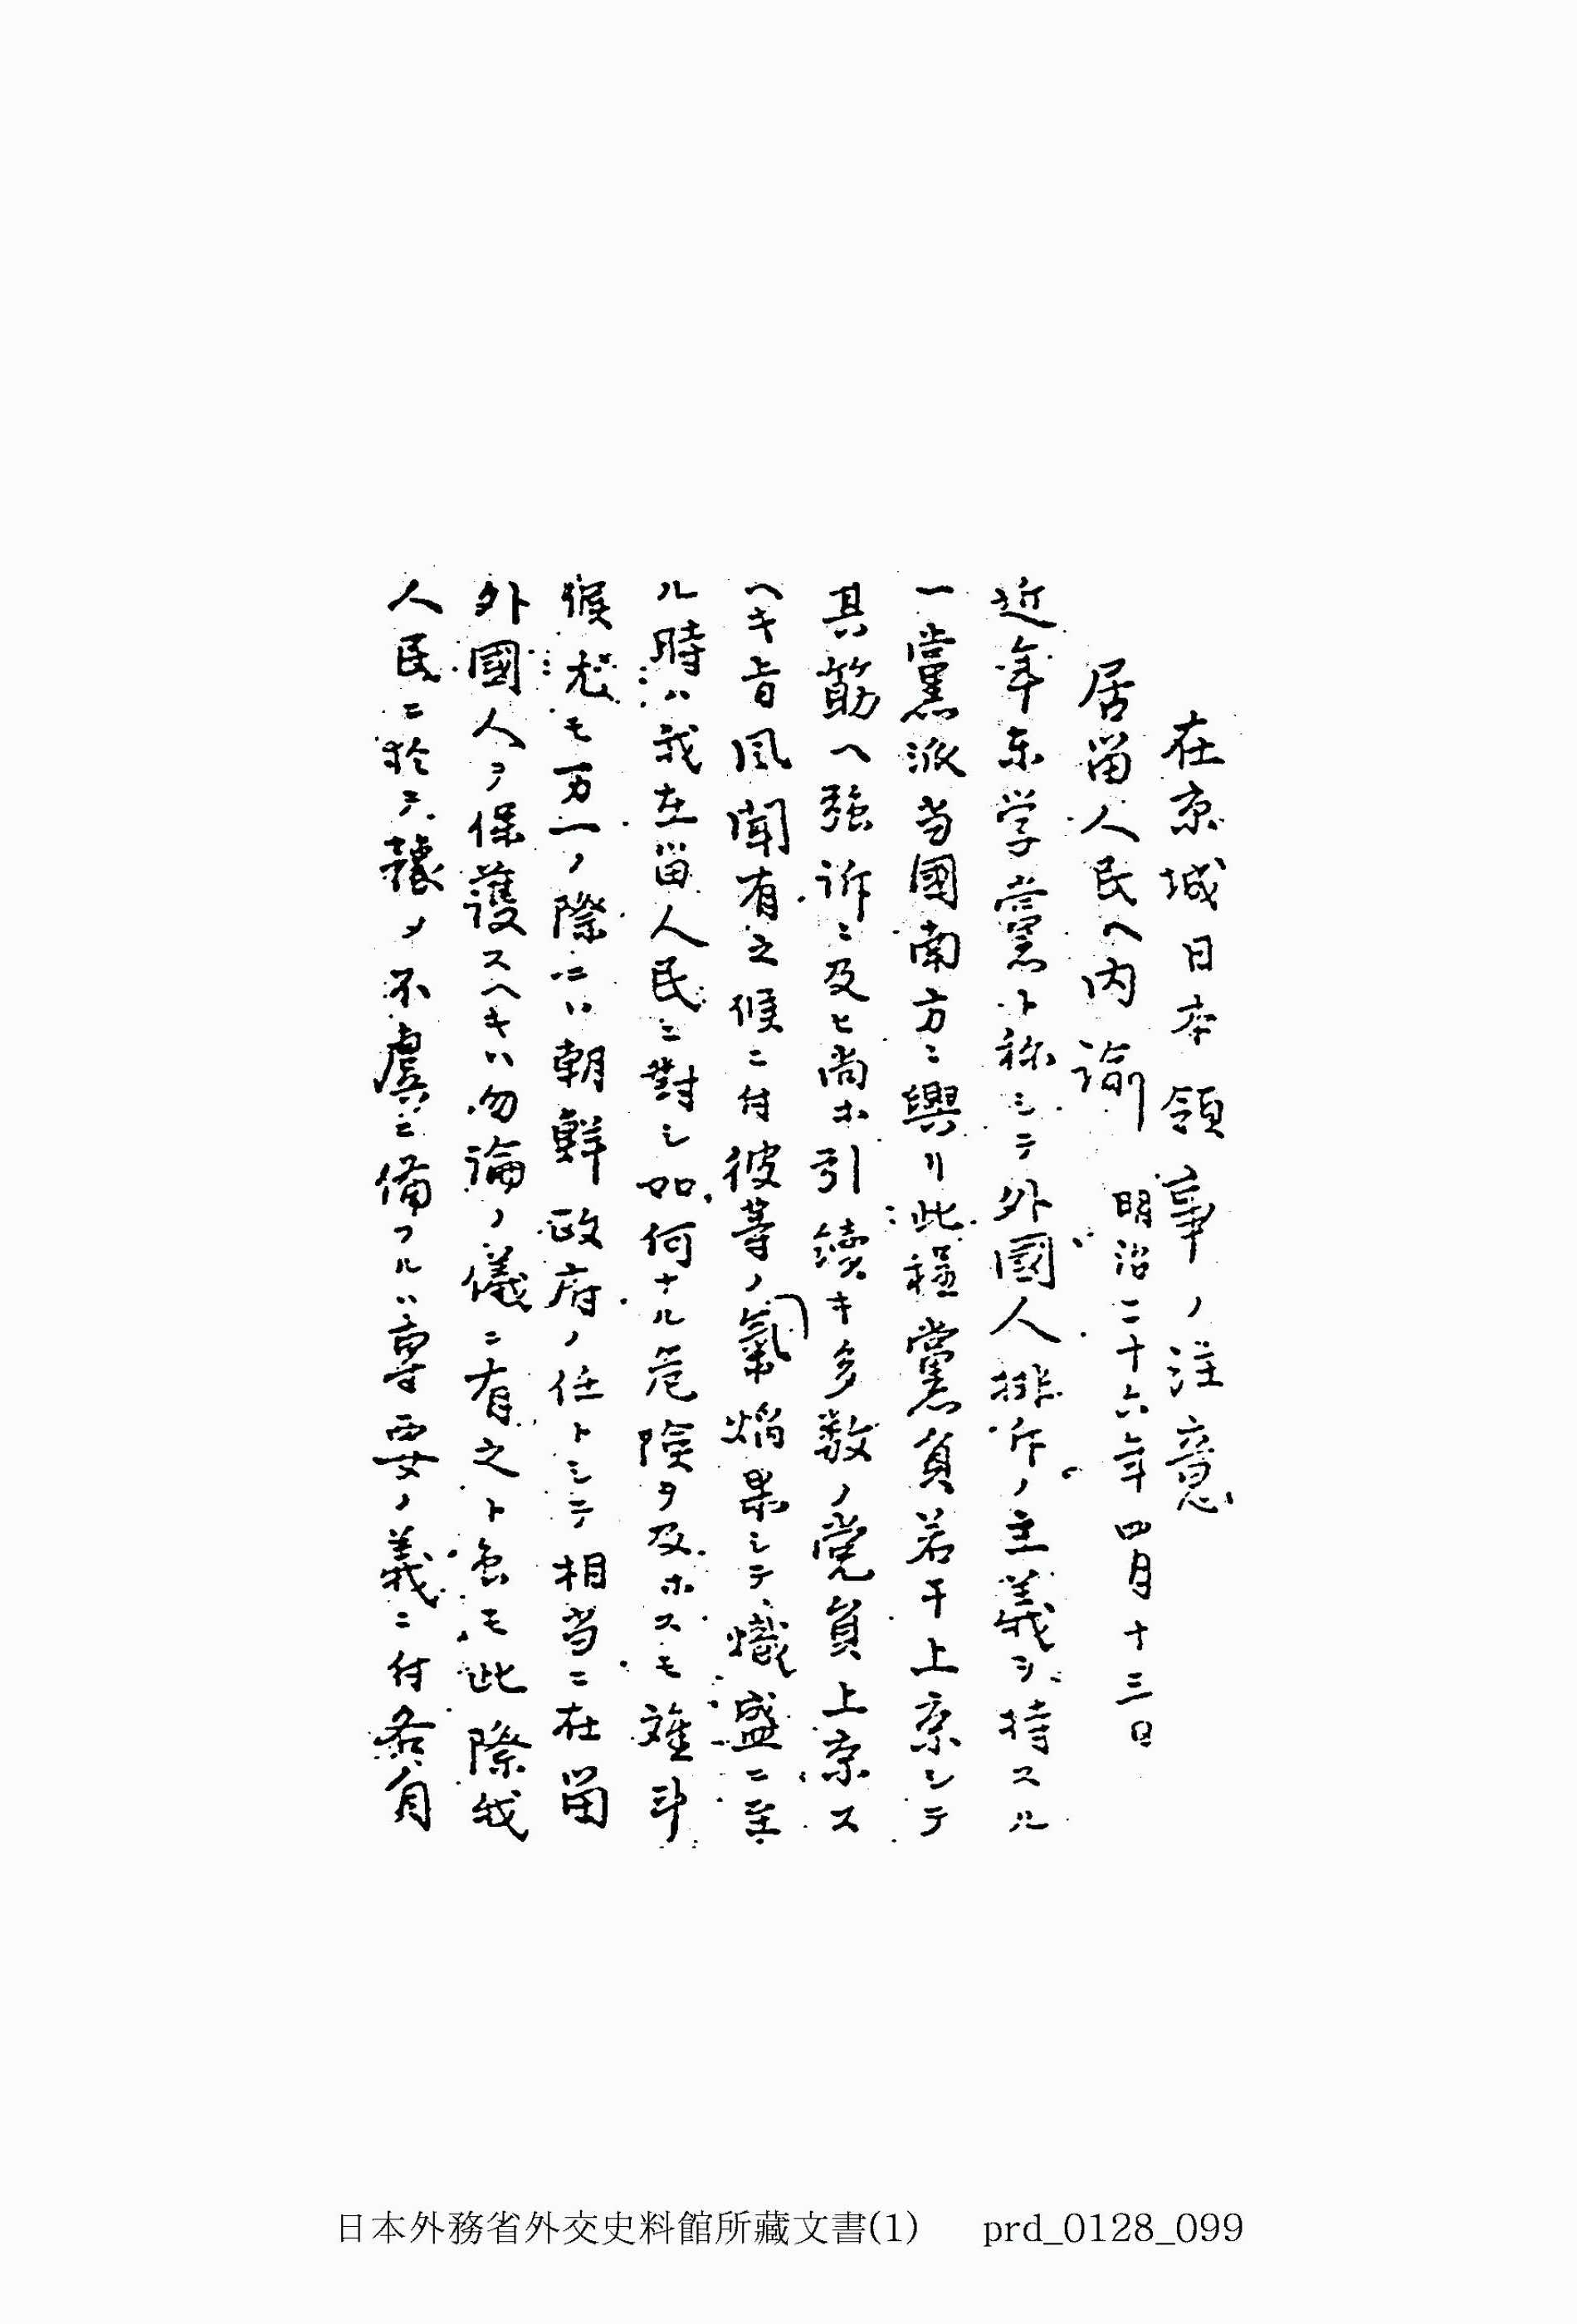 在京城日本領事ノ注意
居留人民ヘ内諭 明治二十六年四月十三日
近年東学黨ト称シテ外國人排斥ノ主義ヲ持スル
一黨派当國南方ニ興リ此程黨員若干上京シテ
其筋ヘ強訴ニ及ヒ尚ホ引續キ多数ノ党員上京ス
ヘキ旨風聞有之候ニ付彼等ノ氣焔果シテ熾盛ニ至
ル時ハ我在留人民ニ對シ如何ナル危険ヲ及ホスモ難斗
候尤モ万一ノ際ニハ朝鮮政府ノ任トシテ相当ニ在留
外國人ヲ保護スヘキハ勿論ノ儀ニ有之ト雖モ此際我
人民ニ於テ豫メ不虞ニ備フルハ専要ノ義ニ付各自
日本外務省外交史料館所藏文書(1) prd_0128_099